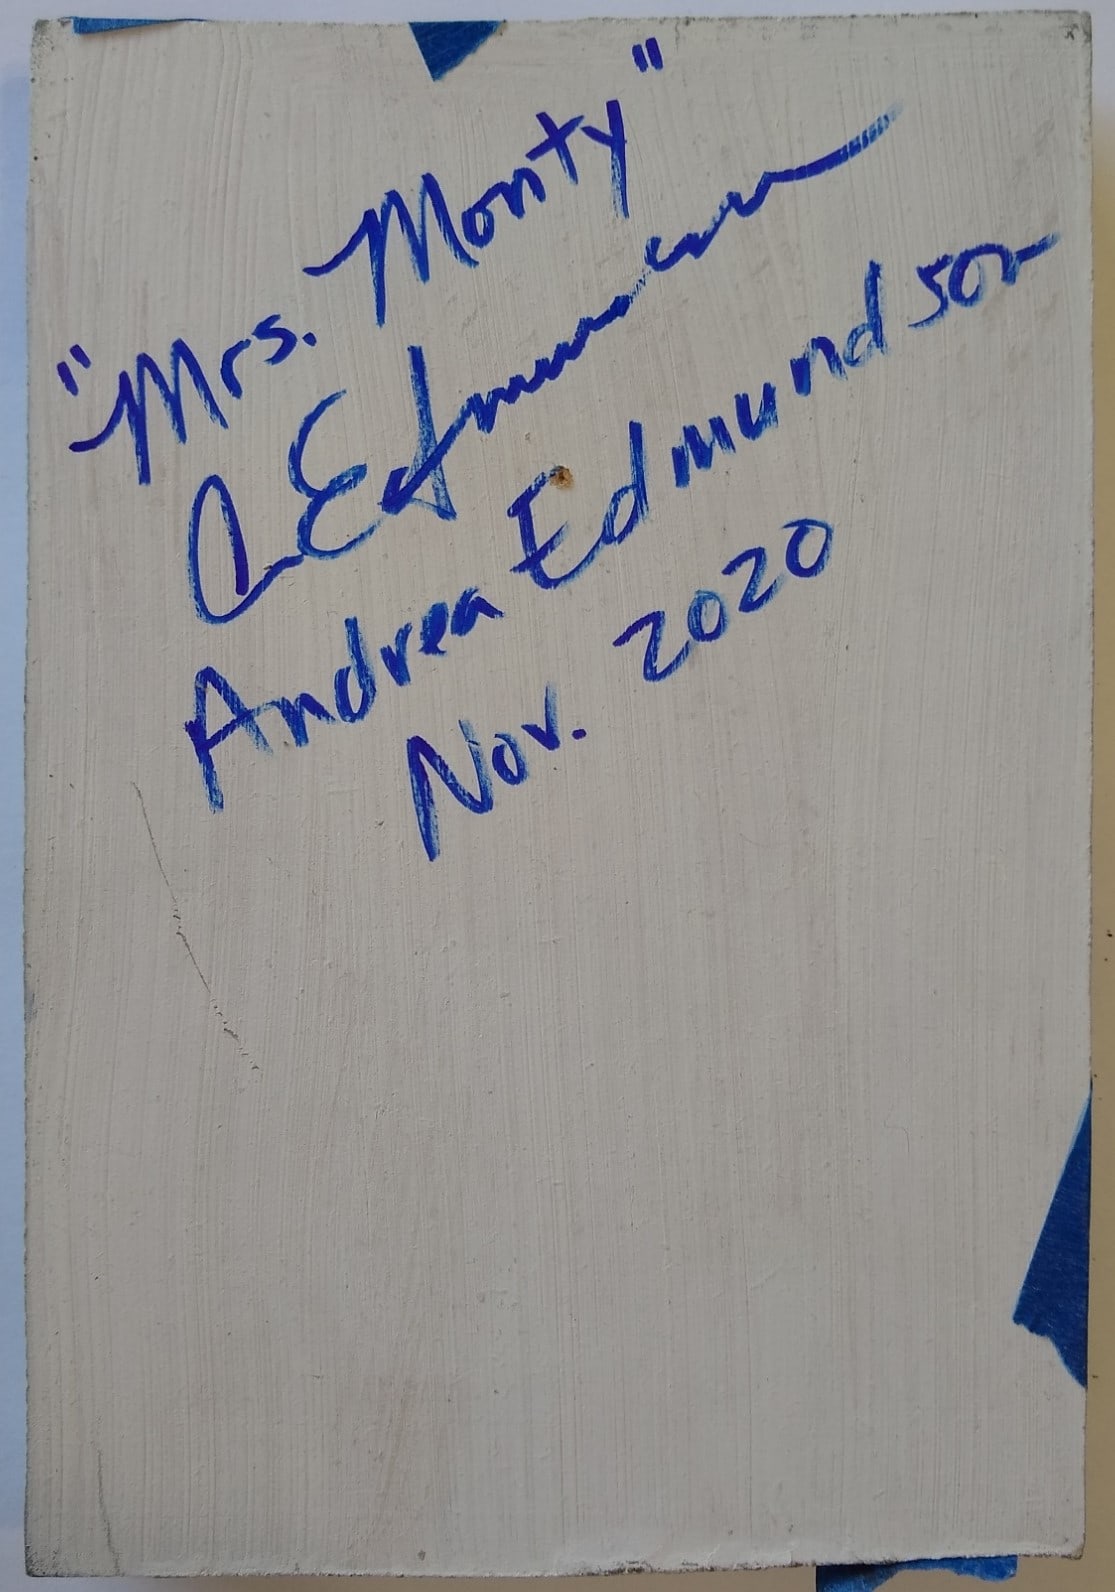 "Mrs. Monty"
A Edmundson
Andrea Edmundson
Nov. 2020